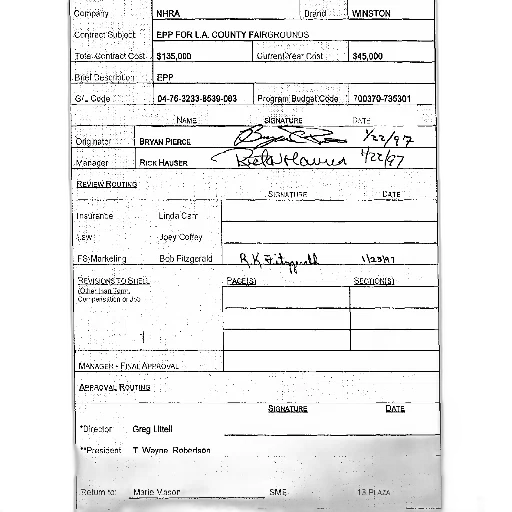 Company NHRA Brand WINSTON
Contract Subject EPP FOR L.A. COUNTY FAIRGROUNDS
Total Contract Cost $135,000 Current Year Cost $45,000
Brief Description EPP
G/L Code 04-76-3233-8539-083 Program Budget Code 700370-735301
NAME SIGNATURE DATE
Originator BRYAN PIERCE 1/22/97
Manager RICK HAUSER Rick Hauser 1/22/97
REVIEW ROUTING
SIGNATURE DATE
Insurance Linda Cam
Law Joey Coffey
FS-Marketing Bob Fitzgerald R K Fitzgerald 1/23/97
REVISIONS TO SHELL PAGE(S) SECTION(S)
(Other than Term,
Compensation or
MANAGER - FINAL APPROVAL
APPROVAL ROUTING
SIGNATURE DATE
*Director Greg Littell
**President T. Wayne Robertson
Return to: Marie Mason SME 13 PLAZA